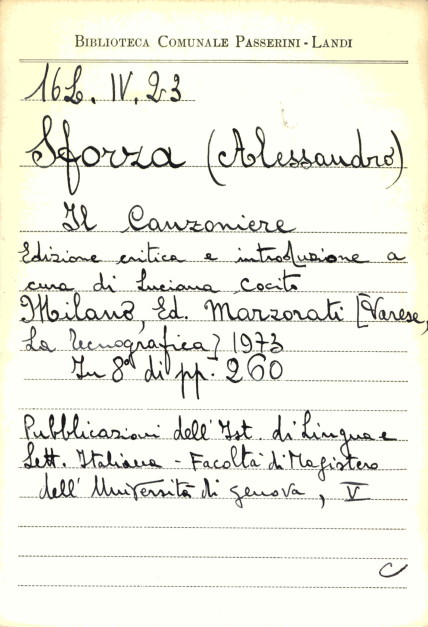 BIBLIOTECA COMUNALE PASSERINI - LANDI
16L. IV. 23
Sforza (Alessandro)
Il Canzoniere
Edizione critica e introduzione a
cura di Luciana Cocito
Milano, Ed. Marzorati [Varese,
La Tecnografica] 1973
In 8° di pp. 260
Pubblicazioni dell'Ist. di Lingua e
Lett. Italiana - Facoltà di Magistero
dell'Università di Genova, V
C